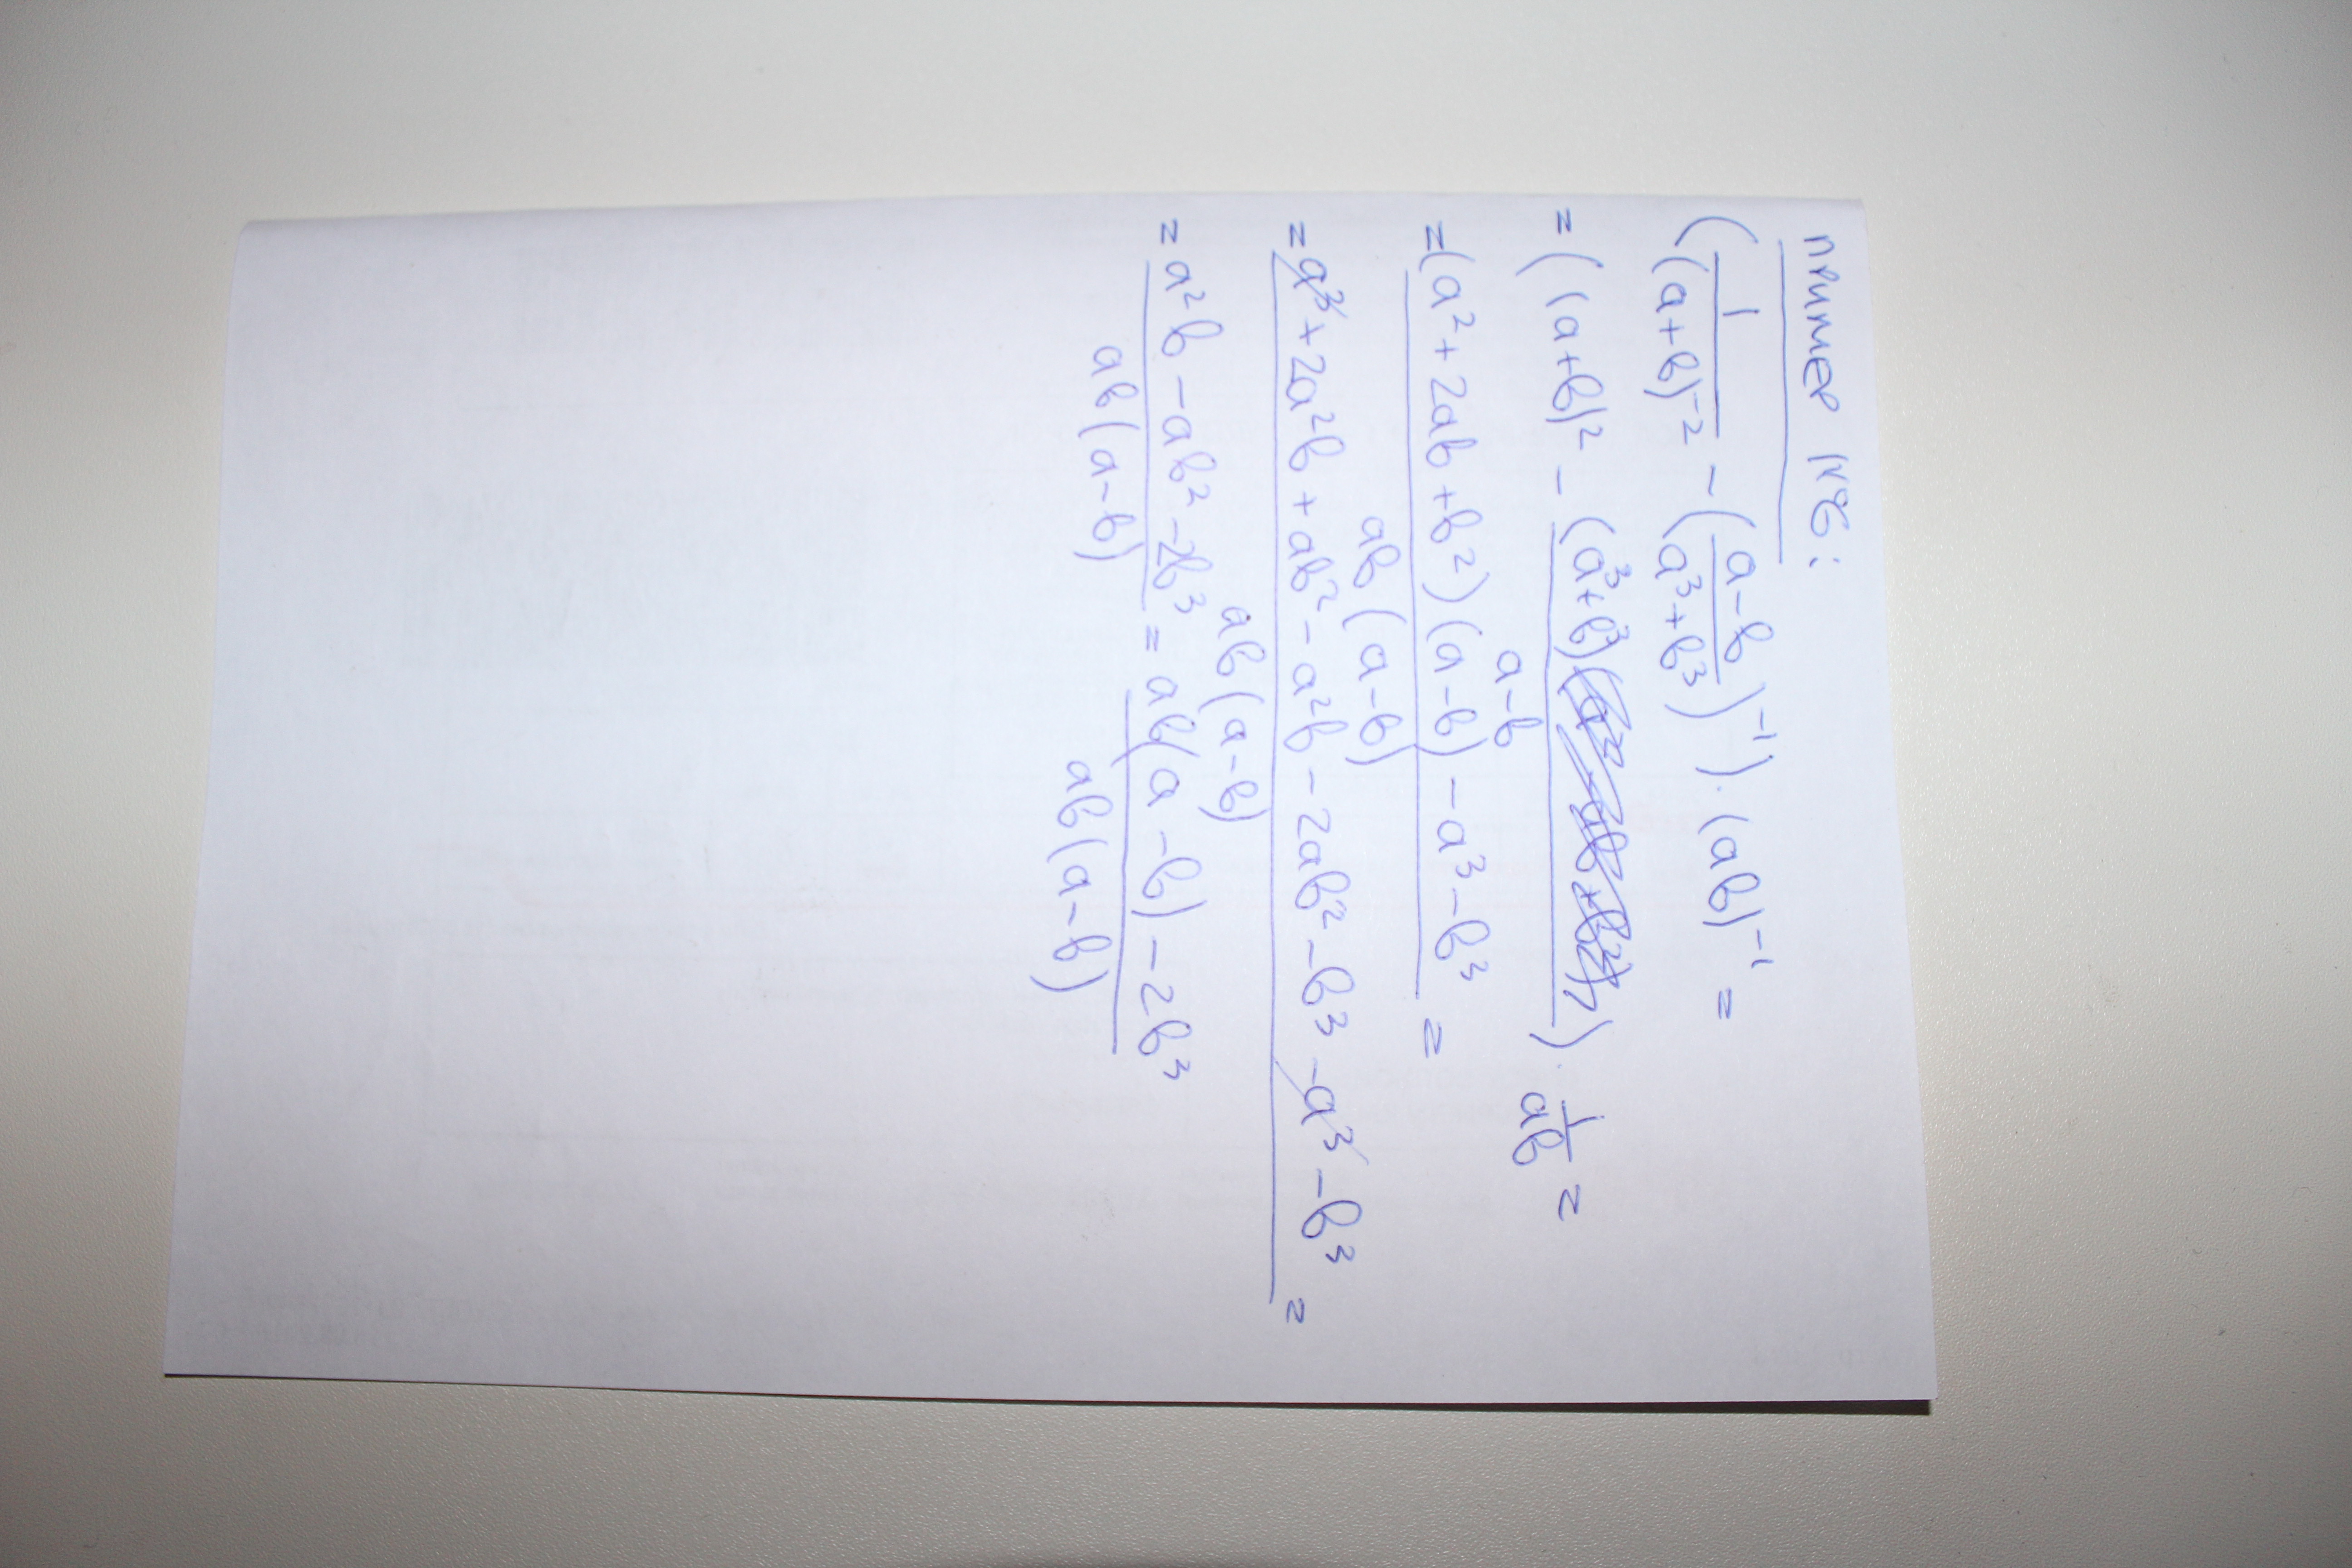 пример №8:
(1/(a+b)⁻² - ((a-b)/(a³+b³))⁻¹) · (ab)⁻¹ =
= ((a+b)² - (a³+b³)/(a-b)) · 1/(ab) =
= ((a²+2ab+b²)(a-b) - a³ - b³)/(ab(a-b)) =
= (a³+2a²b+ab²-a²b-2ab²-b³-a³-b³)/(ab(a-b)) =
= (a²b-ab²-2b³)/(ab(a-b)) = (ab(a-b)-2b³)/(ab(a-b))